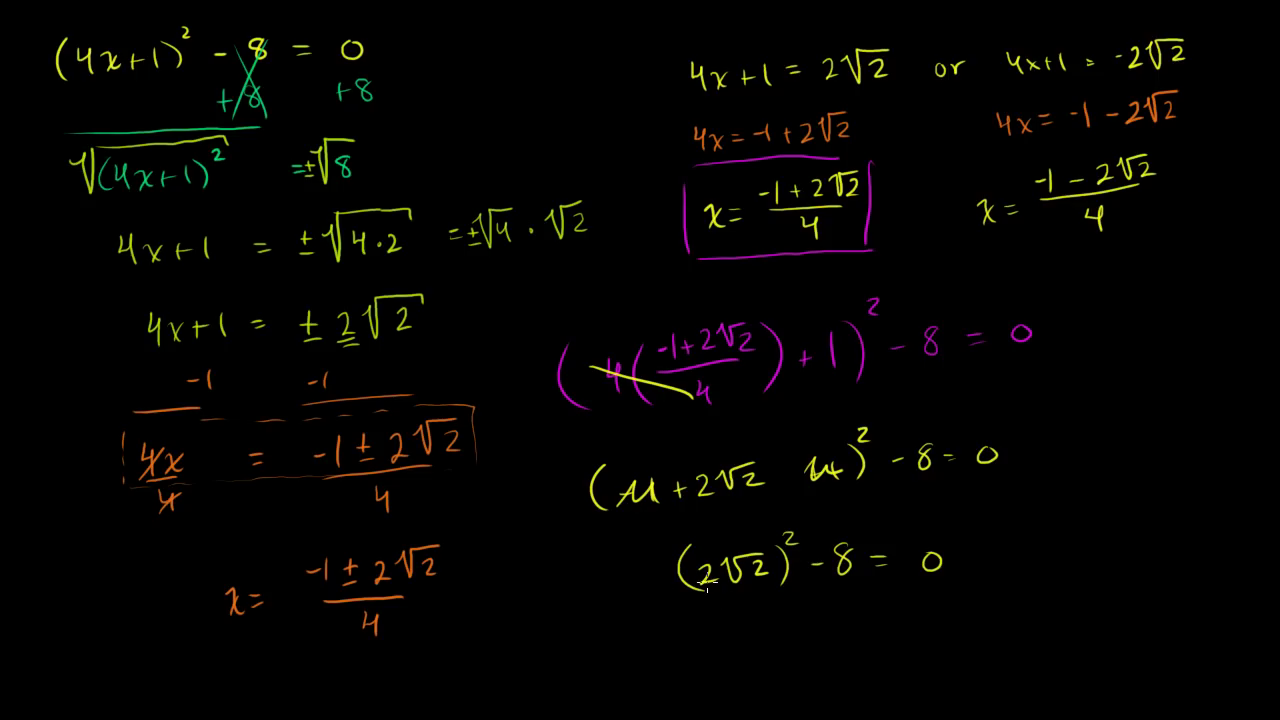 (4x+1)² - 8 = 0
+8 +8
√(4x+1)² = ±√8
4x+1 = ±√4·2 = ±√4 · √2
4x+1 = ± 2√2
-1 -1
4x = -1 ± 2√2
4 4
x = -1 ± 2√2
4
4x+1 = 2√2 or 4x+1 = -2√2
4x = -1 + 2√2 4x = -1 - 2√2
x = -1 + 2√2 x = -1 - 2√2
4 4
(4(-1+2√2
4) + 1)² - 8 = 0
(-1 + 2√2 +1)² - 8 = 0
(2√2)² - 8 = 0